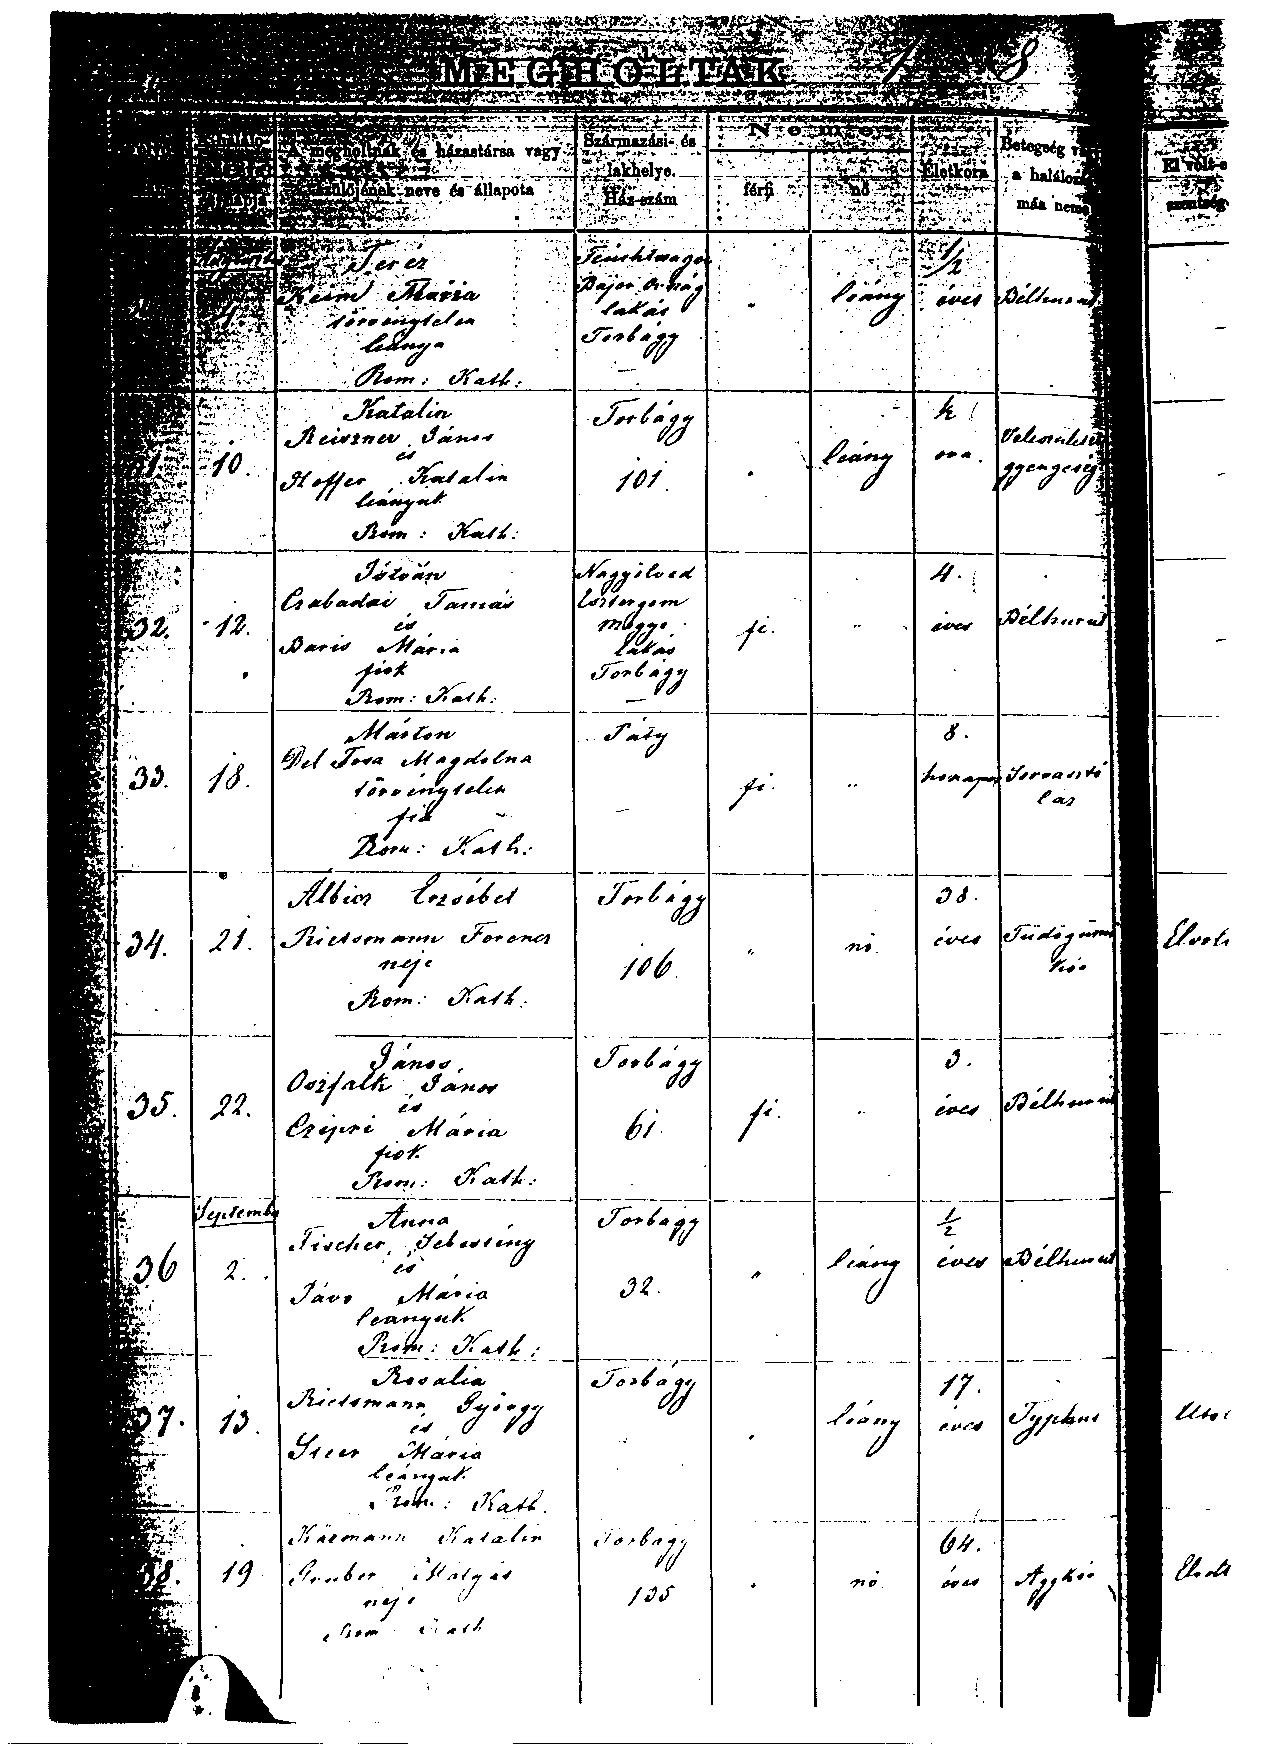 MEGHOLTAK 1 8
A megholtnak és házastársa vagy
szülőjének neve és állapota
Származási- és
lakhelye.
Ház-szám
Neme
férfi
nő
Életkora
Betegség
a halálo
más neme
El volt-e
szentség
Teréz
Mária
törvénytelen
leánya
Rom: Kath:
Bajor ország
lakás
Torbágy
leány
1/2
éves
Bélhurut
31.
10.
Katalin
Reiszner János
és
Hoffer Katalin
leányuk
Rom: Kath:
Torbágy
101.
leány
½
óra.
Veleszületet
gyengeség
32.
12.
István
Czabadai Tamás
és
Baris Mária
fiok
Rom: Kath:
Nagyölved
Esztergom
megye
lakás
Torbágy
fi.
4.
éves
Bélhurut
33.
18.
Márton
Magdolna
törvénytelen
fia
Rom: Kath:
Páty
fi.
8.
hónapos
Sorvasztó
láz
34.
21.
Albicz Erzsébet
Rietsmann Ferencz
neje
Rom: Kath:
Torbágy
106.
nő
38.
éves
Tüdőgümő
kór
Elvolt
35.
22.
János
Oszfalk János
és
Czipri Mária
fiok
Rom: Kath:
Torbágy
61.
fi.
3.
éves
Bélhurut
36
Septembe
2.
Anna
Fischer Sebestény
és
Mária
leányuk
Rom: Kath:
Torbágy
32.
leány
1/2
éves
Bélhurut
37.
13.
Rosalia
Rietsmann György
és
Mária
leányuk
Rom: Kath.
Torbágy
leány
17.
éves
Typhus
38.
19
Katalin
Gruber Mátyás
neje
Rom Kath
Torbágy
135
nő
64.
éves
Aggkór
Elvolt